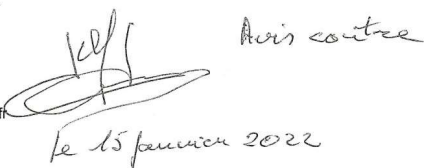 Avis contre
le 15 janvier 2022